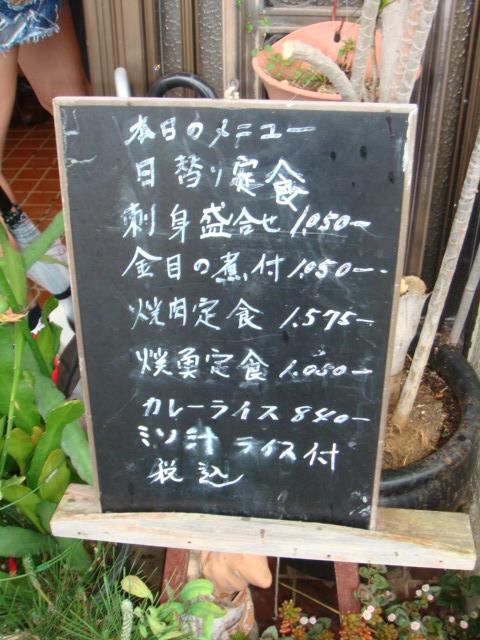 本日のメニュー
日替り定食
刺身盛合せ 1,050-
金目の煮付 1,050-
焼肉定食 1,575-
焼魚定食 1,050-
カレーライス 840-
ミソ汁 ライス付
税込